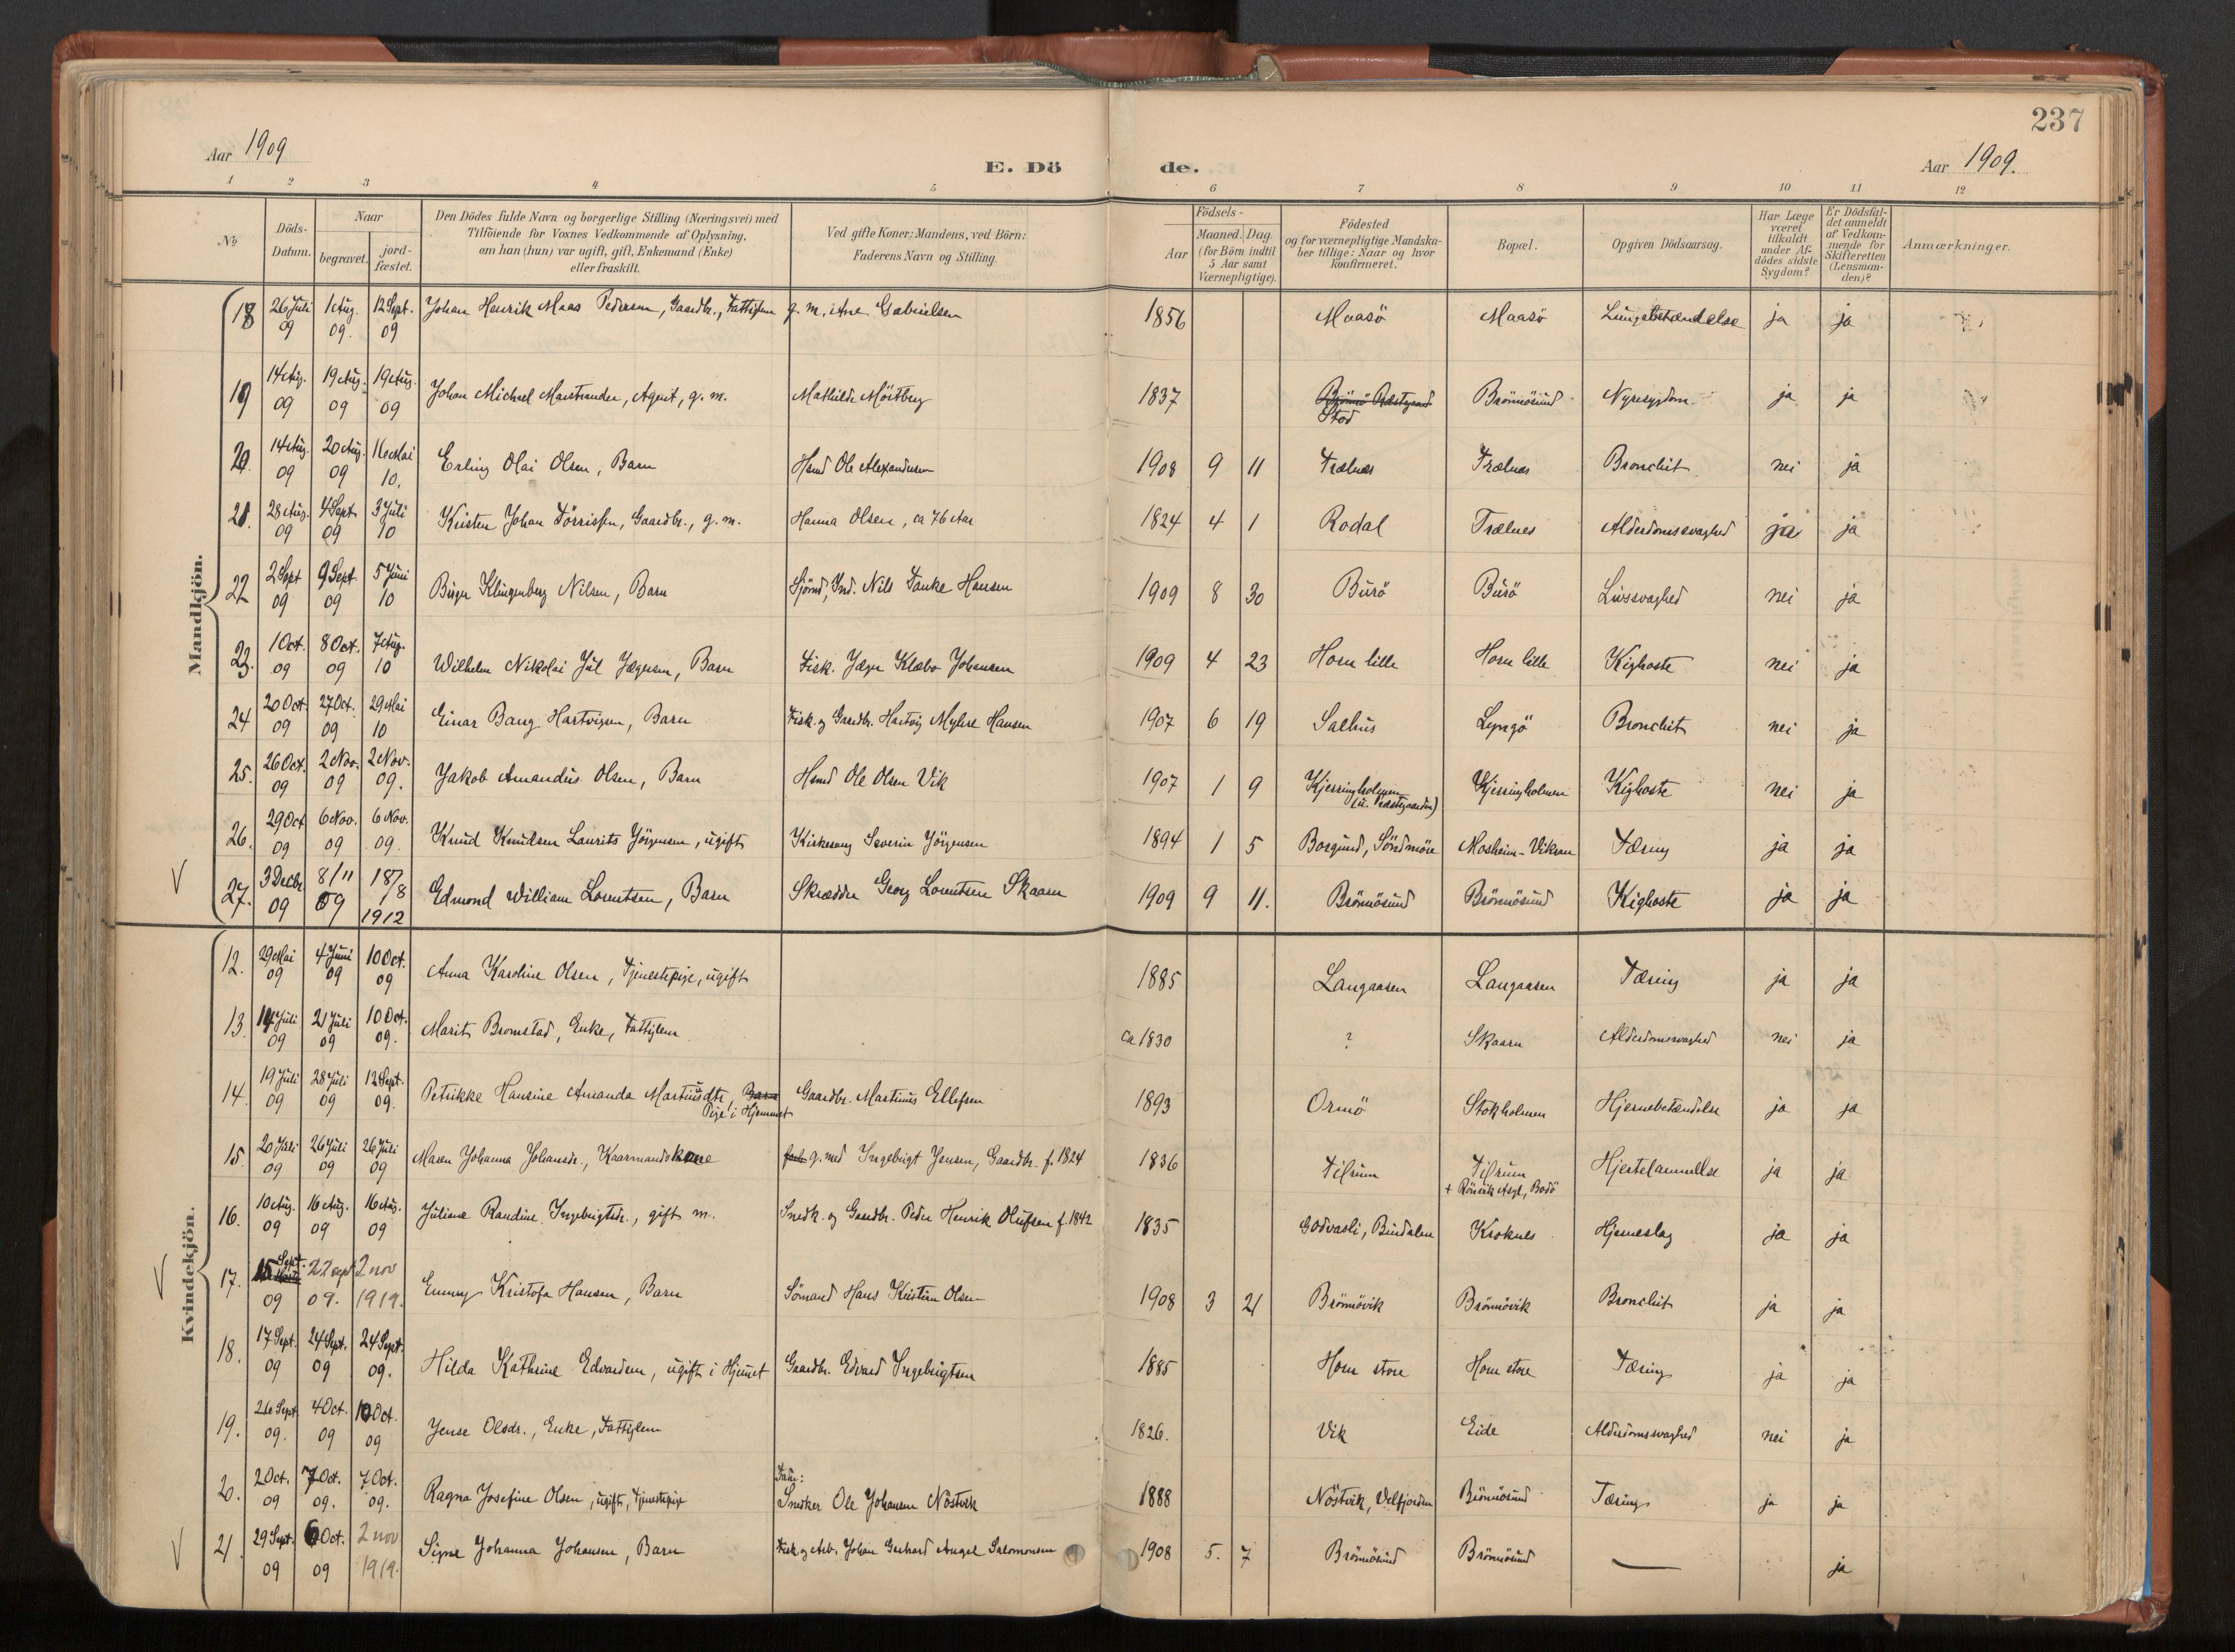 237
Aar 1909
E. Dö
de.
Aar 1909.
1 2 3 4 5 6 7 8 9 10 11 12
№
Döds-Datum.
Naar
begravet.
jord-fæstet.
Den Dödes fulde Navn og borgerlige Stilling (Næringsvei) med
Tilföiende for Voxnes Vedkommende af Oplysning,
om han (hun) var ugift, gift, Enkemand (Enke)
eller fraskilt.
Ved gifte Koner: Mandens, ved Börn:
Faderens Navn og Stilling.
Födsels-
Aar
Maaned. Dag.
(for Börn indtil
5 Aar samt
Værnepligtige).
Födested
og for værnepligtige Mandska-
ber tillige: Naar og hvor
konfirmeret.
Bopæl.
Opgiven Dödsaarsag.
Har Læge
været
tilkaldt
under Af-
dödes sidste
Sygdom?
Er Dödsfal-
det anmeldt
af Vedkom-
mende for
Skifteretten
(Lensman-
den)?
Anmærkninger.
Mandkjön.
18 26 Juli 09 1 Aug. 09. 12 Sept. 09 Johan Henrik Maas Pedersen, Gaardbr., Fattiglem g. m. Ane Gabrielsen 1856 Maasö Maasö Lungebetændelse ja ja
19 14 Aug. 09 19 Aug. 09 19 Aug. 09 Johan Michael Marstrander, Agent, g. m. Mathilde Möstberg 1837 Brönnö Præstegaard Stod Brönnösund Nyresygdom ja ja
20. 14 Aug. 09 20 Aug. 09 16 Mai 10. Erling Olai Olsen, Barn Hsmd Ole Alexandersen 1908 9 11 Trælnes Trælnes Bronchit nei ja
21. 28 Aug. 09 4 Sept. 09 3 Juli 10 Kristen Johan Törrissen, Gaardbr., g. m. Hanna Olsen, ca 76 Aar 1824 4 1 Rodal Trælnes Alderdomssvaghed ja ja
22 2 Sept 09 9 Sept. 09 5 Juni 10 Birger Klingenberg Nilsen, Barn Sjömd, Ind. Nils Tanke Hansen 1909 8 30 Burö Burö Livssvaghed nei ja
23. 1 Oct. 09 8 Oct. 09 7 Aug. 10 Wilhelm Nikolai Jul Jægersen, Barn Fisk. Jæger Klæbo Johansen 1909 4 23 Horn lille Horn lille Kighoste nei ja
24 20 Oct. 09 27 Oct. 09 29 Mai 10 Einar Bang Hartvigsen, Barn Fisk. og Gaardbr. Hartvig Myhre Hansen 1907 6 19 Salhus Lyngö Bronchit nei ja
25. 26 Oct. 09 2 Nov. 09 2 Nov. 09. Jakob Amandus Olsen, Barn Hsmd Ole Olsen Vik 1907 1 9 Kjerringholmen (u. Præstegaarden) Kjerringholmen Kighoste nei ja
26. 29 Oct 09 6 Nov. 09 6 Nov. 09. Knud Knudsen Laurits Jörgensen, ugift Kirkesang Severin Jörgensen 1894 1 5 Borgund, Söndmöre Mosheim-Vikran Tæring ja ja
27. 3 Decbr 09 8/11 09 18/8 1912 Edmond William Lorentsen, Barn Skrædder Georg Lorentsen Skaarn 1909 9 11. Brönnösund Brönnösund Kighoste ja ja
Kvindekjön.
12. 29 Mai 09 4 Juni 09 10 Oct. 09 Anna Karoline Olsen, Tjenestepige, ugift 1885 Langaasen Langaasen Tæring ja ja
13 14 Juli 09 21 Juli 09 10 Oct. 09. Marit Bromstad, Enke, Fattiglem ca 1830 ? Skaarn Alderdomssvaghed nei ja
14. 19 Juli 09 28 Juli 09 12 Sept. 09. Petrikke Hansine Amanda Martinusdtr, Barn Pige i Hjemmet Gaardbr. Martinus Ellefsen 1893 Ormö Stokholmen Hjernebetændelse ja ja
15. 20 Juli 09 26 Juli 09 26 Juli 09 Maren Johanna Johansdr., Kaarmandskone g. med Ingebrigt Jensen, Gaardbr. f. 1824 1836 Tilrum Tilrum + Rönvik Asyl, Bodö Hjertelammelse ja ja
16. 10 Aug. 09 16 Aug. 09 16 Aug. 09 Juliane Randine Ingebrigtsdr., gift m. Snedk. og Gaardbr. Peder Henrik Olufsen f. 1842 1835 Godvasli, Bindalen Kroknes Hjerneslag ja ja
17. 15 Sept. 09 22 sept 09. 2 nov 1919. Emmy Kristofa Hansen, Barn Sömand Hans Kristian Olsen 1908 3 21 Brönnövik Brönnövik Bronchit ja ja
18. 17 Sept. 09 24 Sept. 09 24 Sept. 09. Hilda Kathrine Edvardsen, ugift i Hjemmet Gaardbr. Edvard Ingebrigtsen 1885 Horn store Horn store Tæring ja ja
19. 26 Sept. 09. 4 Oct. 09 10 Oct. 09 Jense Olsdr., Enke, Fattiglem 1826. Vik Eide Alderdomssvaghed nei ja
20. 2 Oct. 09 7 Oct. 09. 7 Oct. 09. Ragna Josefine Olsen, ugift, Tjenestepige Snedker Ole Johansen Nöstvik 1888 Nöstvik, Velfjorden Brönnösund Tæring ja ja
21. 29 Sept. 09 6 Oct. 09 2 nov 1919. Signe Johanna Johansen, Barn Fisk. og Arb. Johan Gerhard Angel Salomonsen 1908 5. 7 Brönnösund Brönnösund — ja